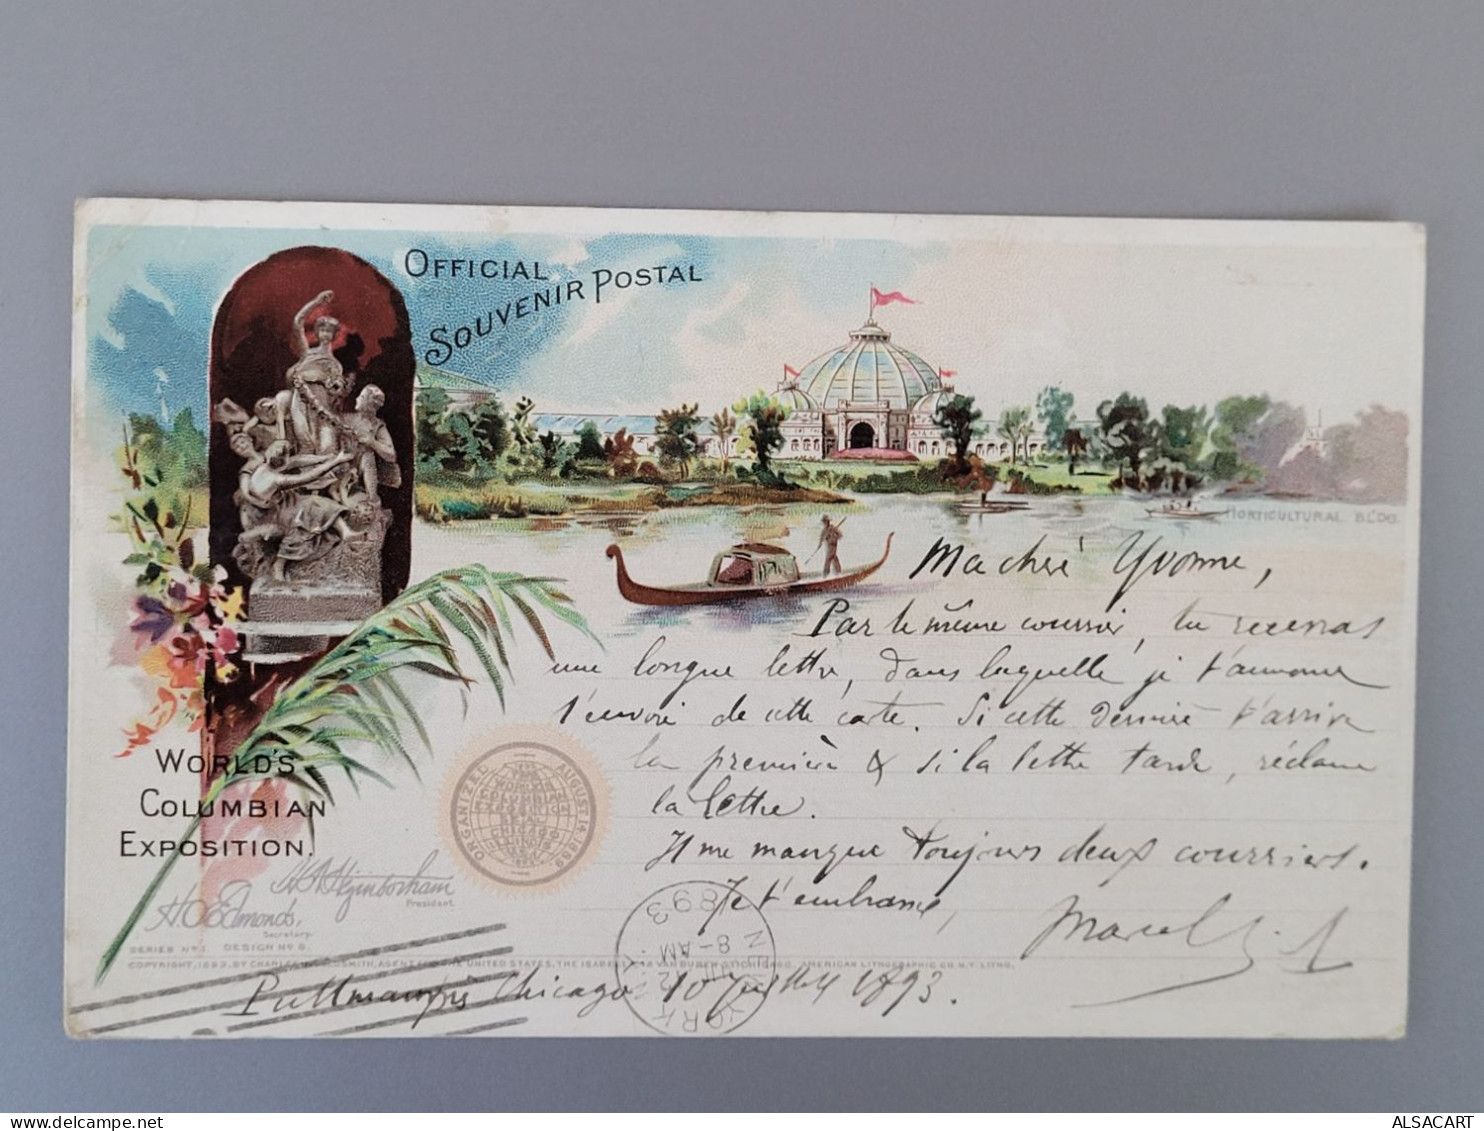 OFFICIAL
SOUVENIR POSTAL
HORTICULTURAL BLDG.
Ma chère Yvonne,
Par le même courrier, tu recevras
une longue lettre, dans laquelle je t'annonce
l'envoi de cette carte. Si cette dernière t'arrive
la première & si la lettre tarde, réclame
la lettre.
Il me manque toujours deux courriers.
Je t'embrasse,
Marcel
WORLD'S
COLUMBIAN
EXPOSITION.
ORGANIZED AUGUST 14, 1889
President.
H.O. Edmonds,
Secretary.
SERIES No 1. DESIGN No 6.
COPYRIGHT, 1892, BY CHARLES W. GOLDSMITH, AGENT FOR THE UNITED STATES, THE ISABELLA, 48 VAN BUREN ST. CHICAGO. AMERICAN LITHOGRAPHIC CO. N.Y. LITHO.
Chicago 10 juillet 1893.
YORK
JUL 12
8-AM
1893
ALSACART